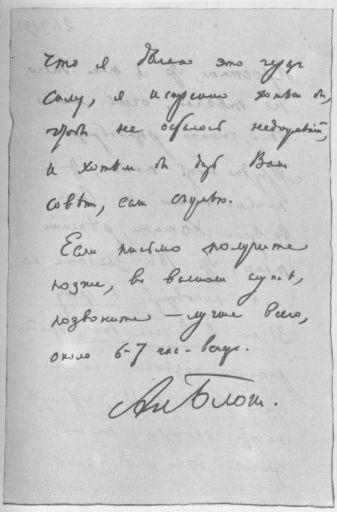 Что я делаю это через
силу, я искренно хотел бы,
чтобы не осталось недоразумений,
и хотел бы дать Вам
совет, если сумею.
Если письмо получите
позже, во всяком случае,
позвоните — лучше всего,
около 6-7 час. вечера.
Ал. Блок.